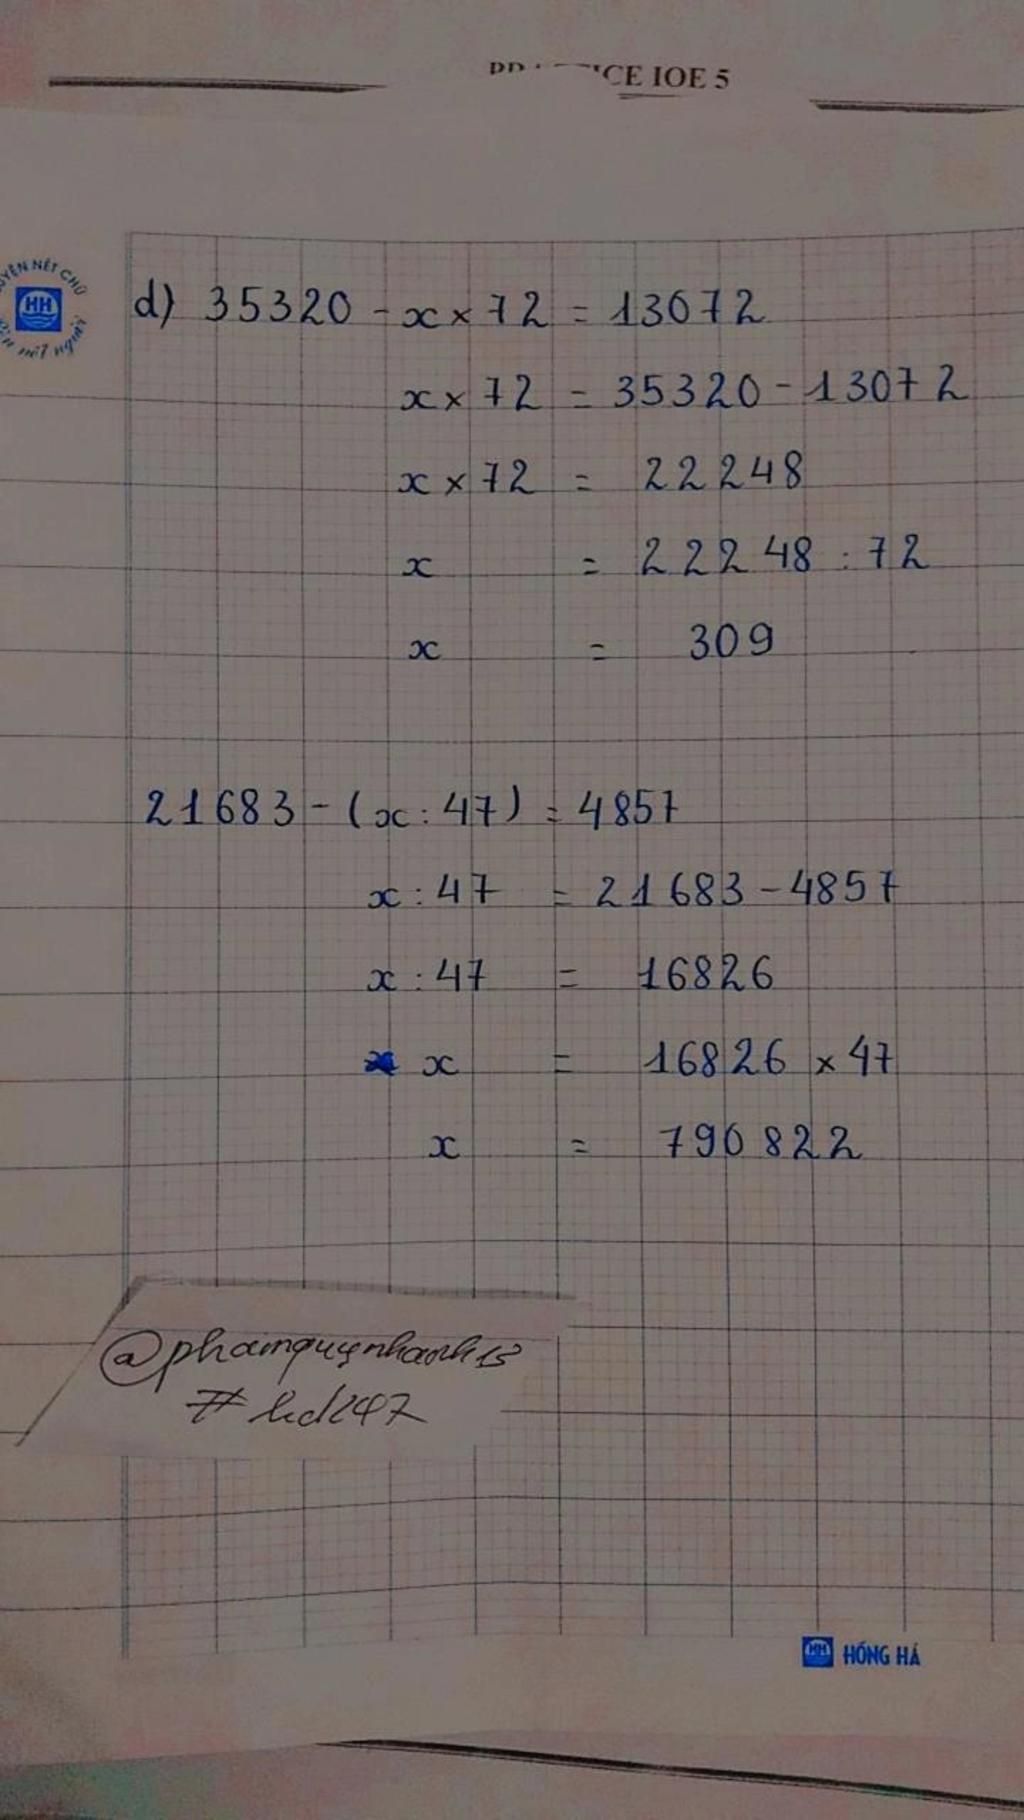 ICE IOE 5
NÉT CHỮ
HH
nết người
d) 35320 - x × 72 = 13072
x × 72 = 35320 - 13072
x × 72 = 22248
x = 22248 : 72
x = 309
21683 - (x : 47) = 4857
x : 47 = 21683 - 4857
x : 47 = 16826
x = 16826 × 47
x = 790822
@phamquynhanh13
#hd247
HH HỒNG HÀ